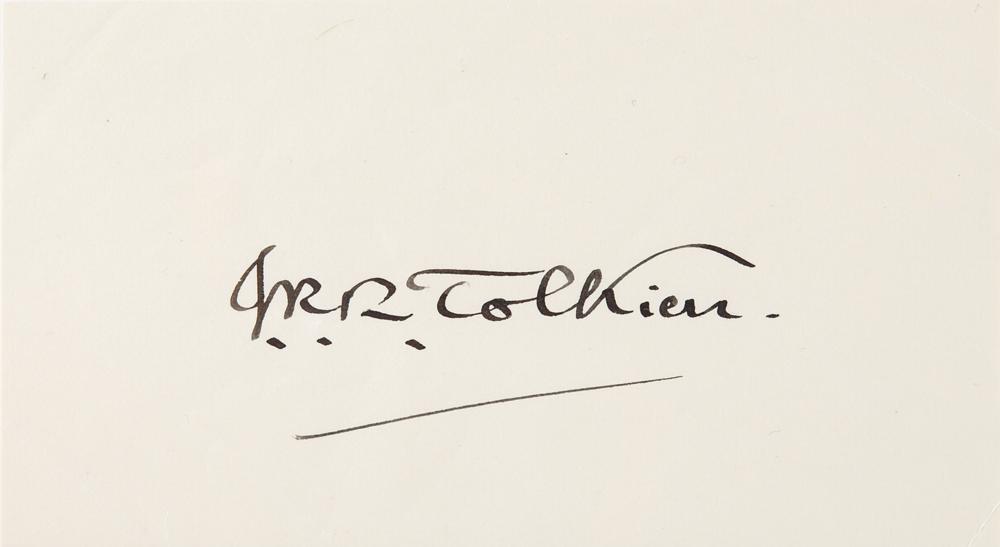 J.R.R. Tolkien.